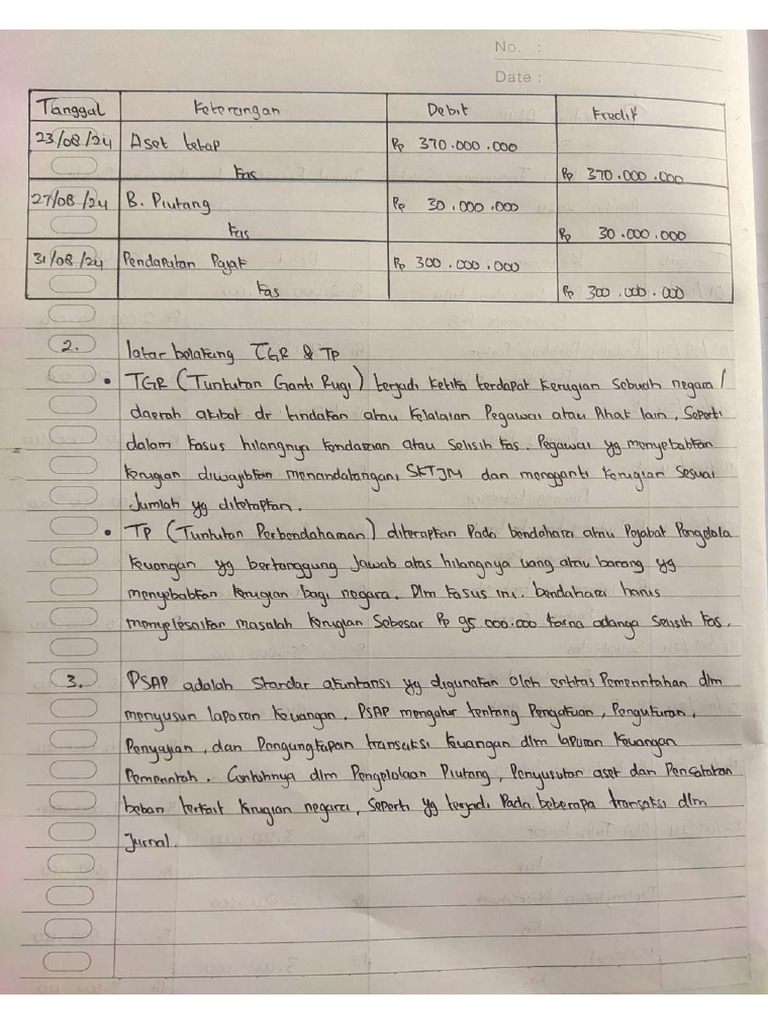 No. :
Date :
Tanggal Keterangan Debit Kredit
23/08/24 Aset tetap Rp 370.000.000
Kas Rp 370.000.000
27/08/24 B. Piutang Rp 30.000.000
Kas Rp 30.000.000
31/08/24 Pendapatan Pajak Rp 300.000.000
Kas Rp 300.000.000
2. latar belakang TGR & TP
• TGR (Tuntutan Ganti Rugi) terjadi ketika terdapat kerugian sebuah negara/
daerah akibat dr tindakan atau kelalaian Pegawai atau Pihak lain, Seperti
dalam kasus hilangnya kendaraan atau Selisih kas. Pegawai yg menyebabkan
kerugian diwajibkan menandatangani SKTJM dan mengganti kerugian sesuai
Jumlah yg ditetapkan.
• TP (Tuntutan Perbendahaman) diterapkan Pada bendahara atau Pejabat Pengelola
keuangan yg bertanggung Jawab atas hilangnya uang atau barang yg
menyebabkan kerugian bagi negara. Dlm kasus ini. bendahara harus
menyelesaikan masalah kerugian Sebesar Rp 95.000.000 karna adanya Selisih kas.
3. PSAP adalah Standar akuntansi yg digunakan oleh entitas Pemerintahan dlm
menyusun laporan keuangan. PSAP mengatur tentang Pengakuan, Pengukuran,
Penyajian, dan Pengungkapan transaksi keuangan dlm laporan keuangan
Pemerintah. Contuhnya dlm Pengelolaan Piutang, Penyusutan aset dan Pencatatan
beban terkait kerugian negara, Seperti yg terjadi Pada beberapa transaksi dlm
Jurnal.